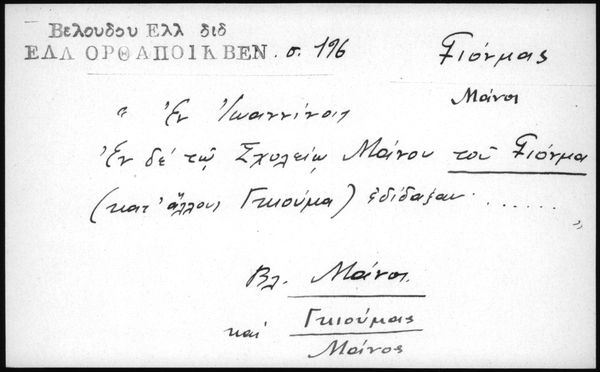 Βελουδου Ελλ διδ
ΕΛΛ ΟΡΘΑΠΟΙΚΒΕΝ. σ. 196
Γιόνμας
Μάνοσ
" Ἐν Ἰωαννίνοις
Ἐν δέ τῷ Σχολείῳ Μάνου τοῦ Γιόνμα
(κατ' ἄλλους Γκιούμα) ἐδίδαξαν ......
"
Βλ. Μάνος.
καί Γκιούμας
Μάνος